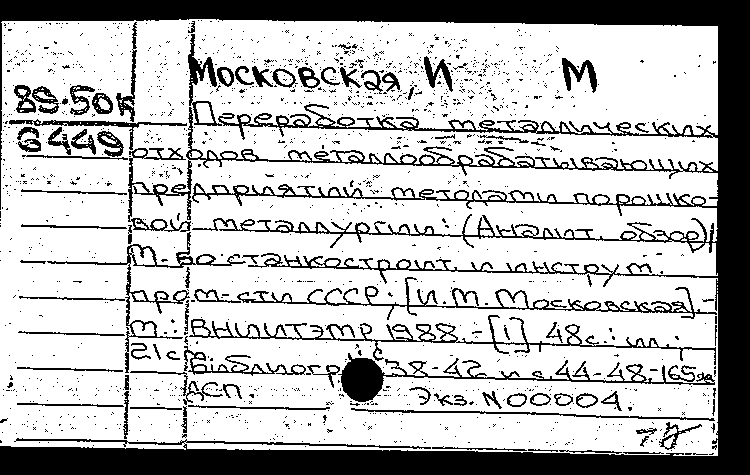 Московская, И М
89-50к
6449
Переработка металлических
отходов металлообрабатывающих
предприятий методами порошко-
вой металлургии: (Аналит. обзор)/
М-во станкостроит. и инструм.
пром-сти СССР; [И.М. Московская].-
М.: ВНИИТЭМР, 1988.-[1], 48с.: ил.;
21см.
Библиогр.: с. 38-42 и с. 44-48.-165экз
ДСП. Экз. N00004.